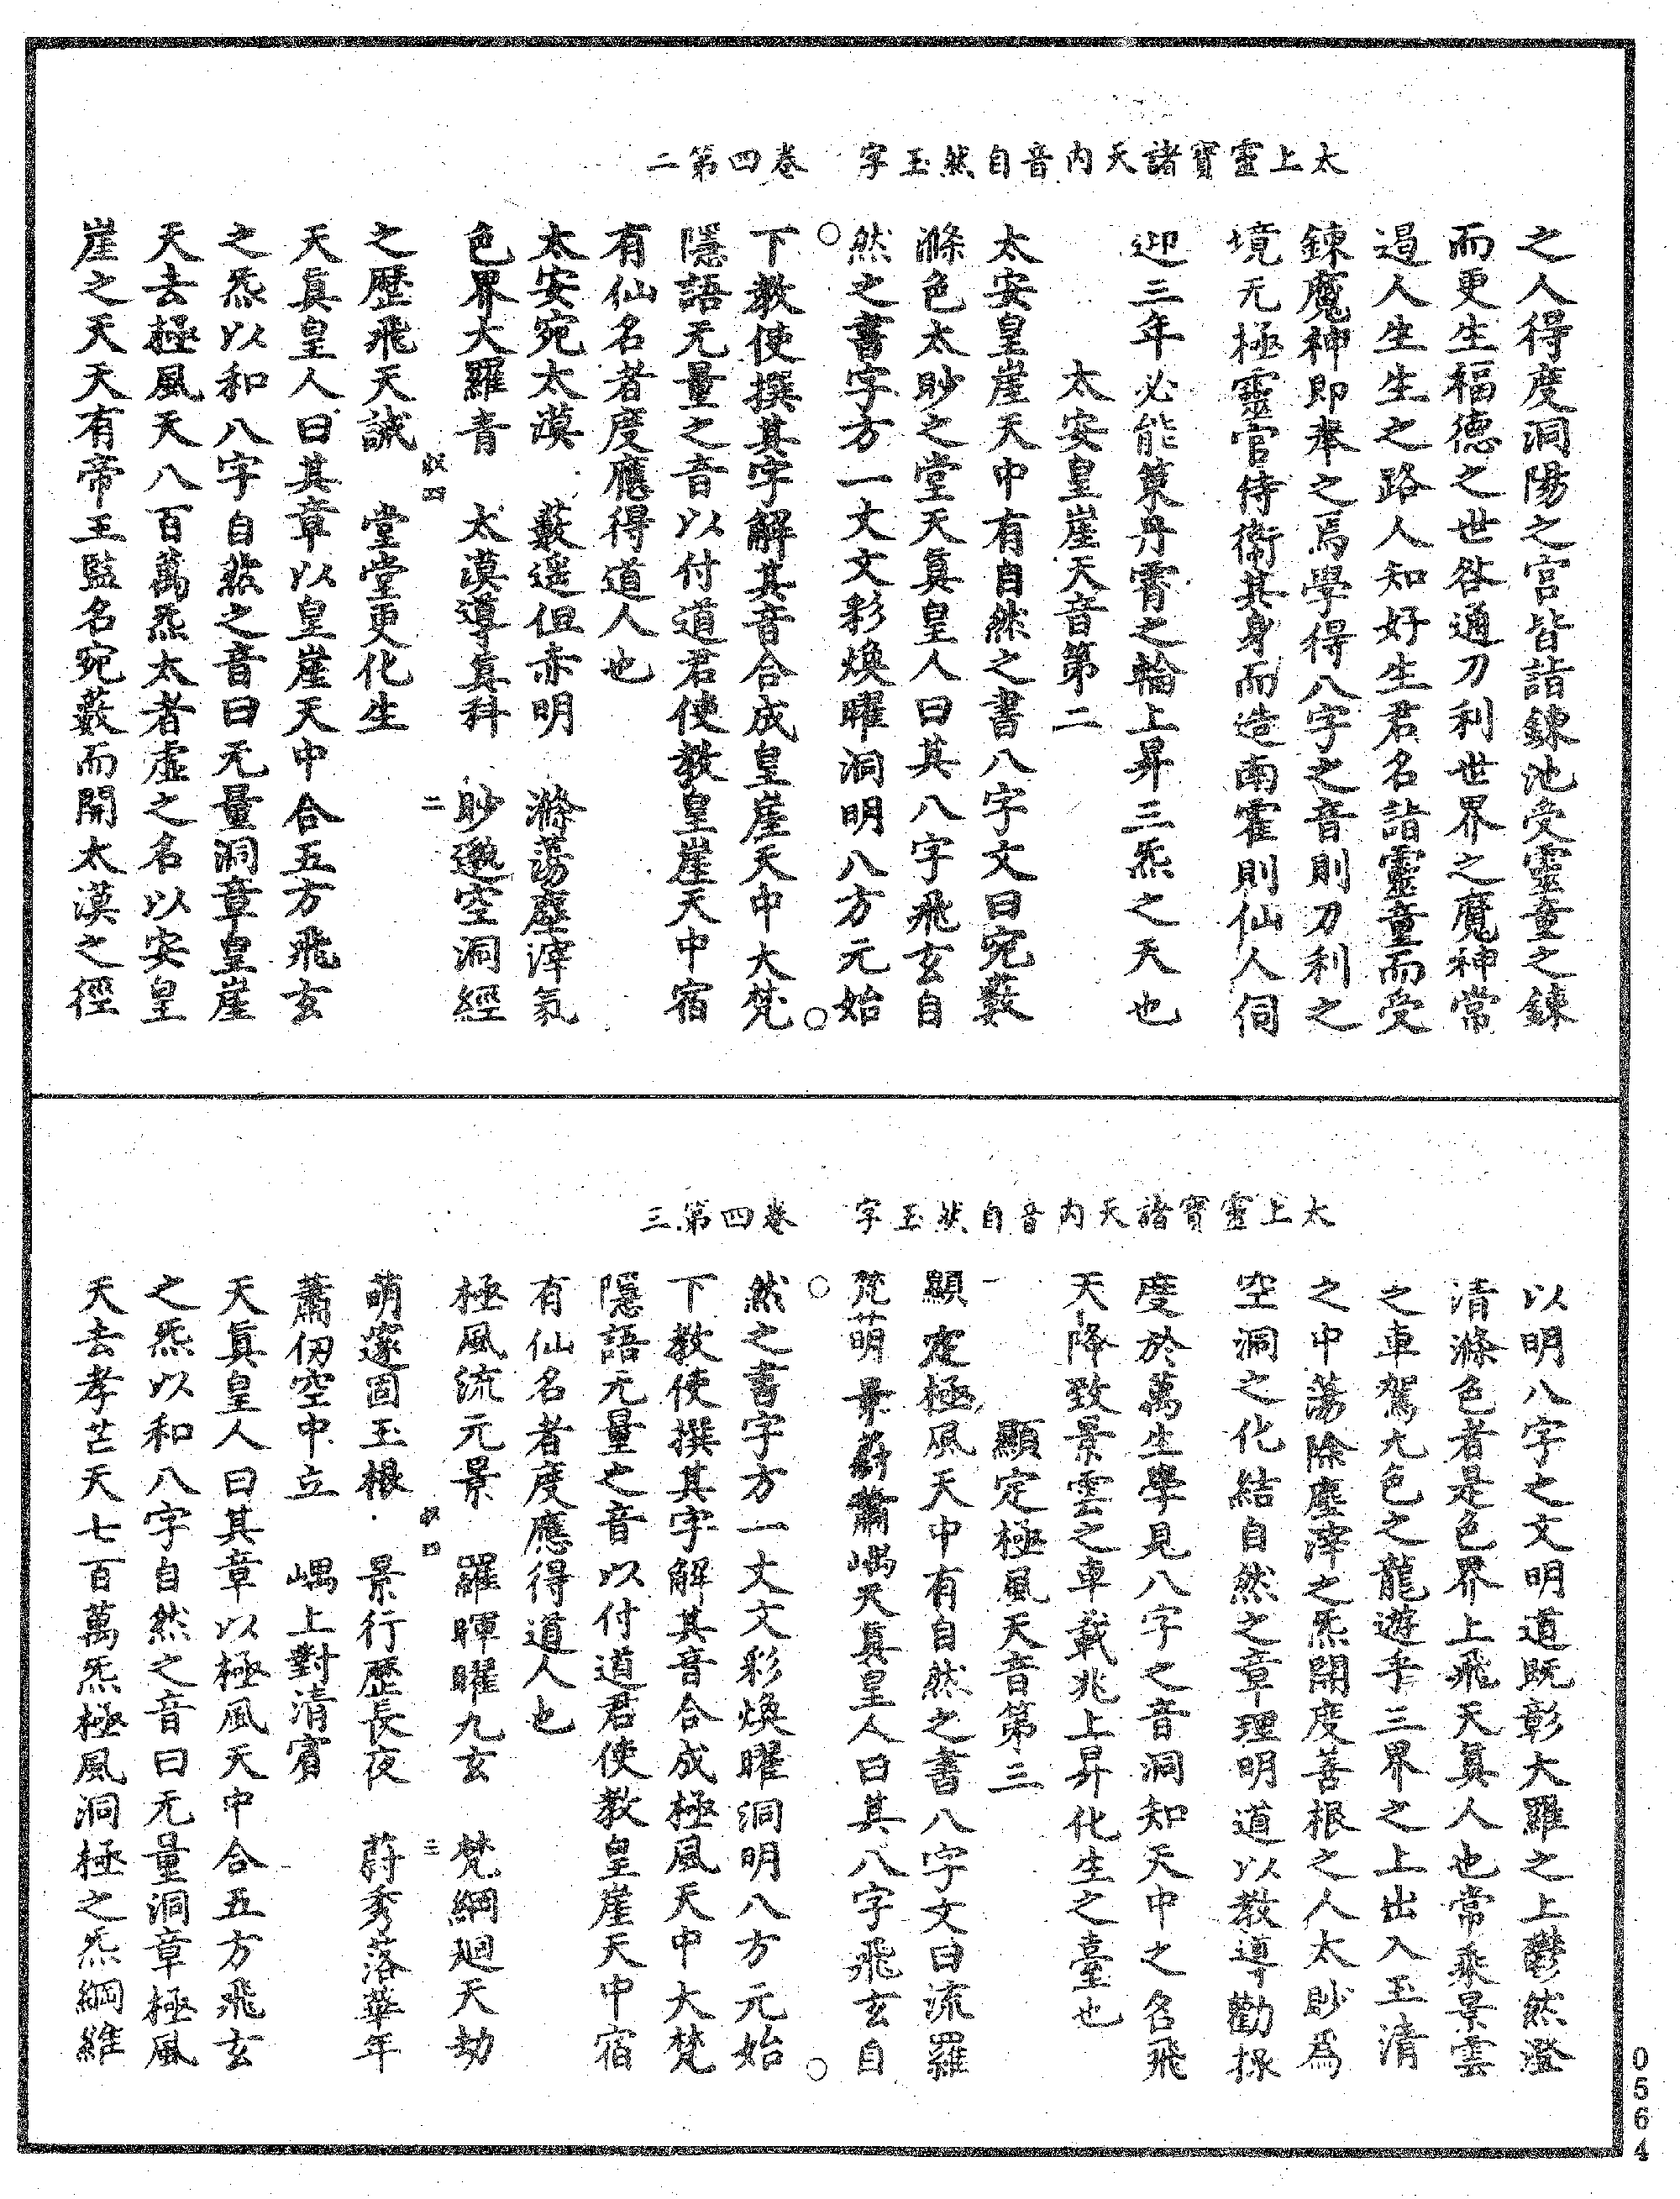 太上靈寶諸天內音自然玉字　卷四第二
之人得度洞陽之宮皆詣鍊池受靈童之鍊
而更生福德之世咎通刀利世界之魔神常
遏人生生之路人知好生君名詣靈童而受
鍊魔神即奉之焉學得八字之音則刀利之
境无極靈官侍衛其身而造南霍則仙人伺
迎三年必能策丹霄之輪上昇三炁之天也
太安皇崖天音第二
太安皇崖天中有自然之書八字文曰宛藪
滌色太眇之堂天真皇人曰其八字飛玄自
然之書字方一丈文彩煥曜洞明八方元始
下教使撰其字解其音合成皇崖天中大梵
隱語无量之音以付道君使教皇崖天中宿
有仙名者度應得道人也
太安宛太漠　藪遥但赤明　滌蕩塵滓氣
色界大羅青　太漠導真科　眇邈空洞經
之歷飛天誠　堂堂更化生
天真皇人曰其章以皇崖天中合五方飛玄
之炁以和八字自然之音曰无量洞章皇崖
天去極風天八百萬炁太者虛之名以安皇
崖之天天有帝王監名宛藪而開太漠之徑
太上靈寶諸天內音自然玉字　卷四第三
以明八字之文明道既彰大羅之上鬱然澄
清滌色者是色界上飛天真人也常乘景雲
之車駕九色之龍遊乎三界之上出入玉清
之中蕩除塵滓之炁開度善根之人太眇爲
空洞之化結自然之章理明道以教導勸採
度於萬生學見八字之音洞知天中之名飛
天降致景雲之車載兆上昇化生之臺也
顯定極風天音第三
顯定極風天中有自然之書八字文曰流羅
梵萌景蔚蕭嵎天真皇人曰其八字飛玄自
然之書字方一丈文彩煥曜洞明八方元始
下教使撰其字解其音合成極風天中大梵
隱語无量之音以付道君使教皇崖天中宿
有仙名者度應得道人也
極風流元景　羅暉曜九玄　梵綱迴天劫
萌邃固玉根　景行歷長夜　蔚秀落華年
蕭仞空中立　嵎上對清賓
天真皇人曰其章以極風天中合五方飛玄
之炁以和八字自然之音曰无量洞章極風
天去孝芒天七百萬炁極風洞極之炁綱維
0564